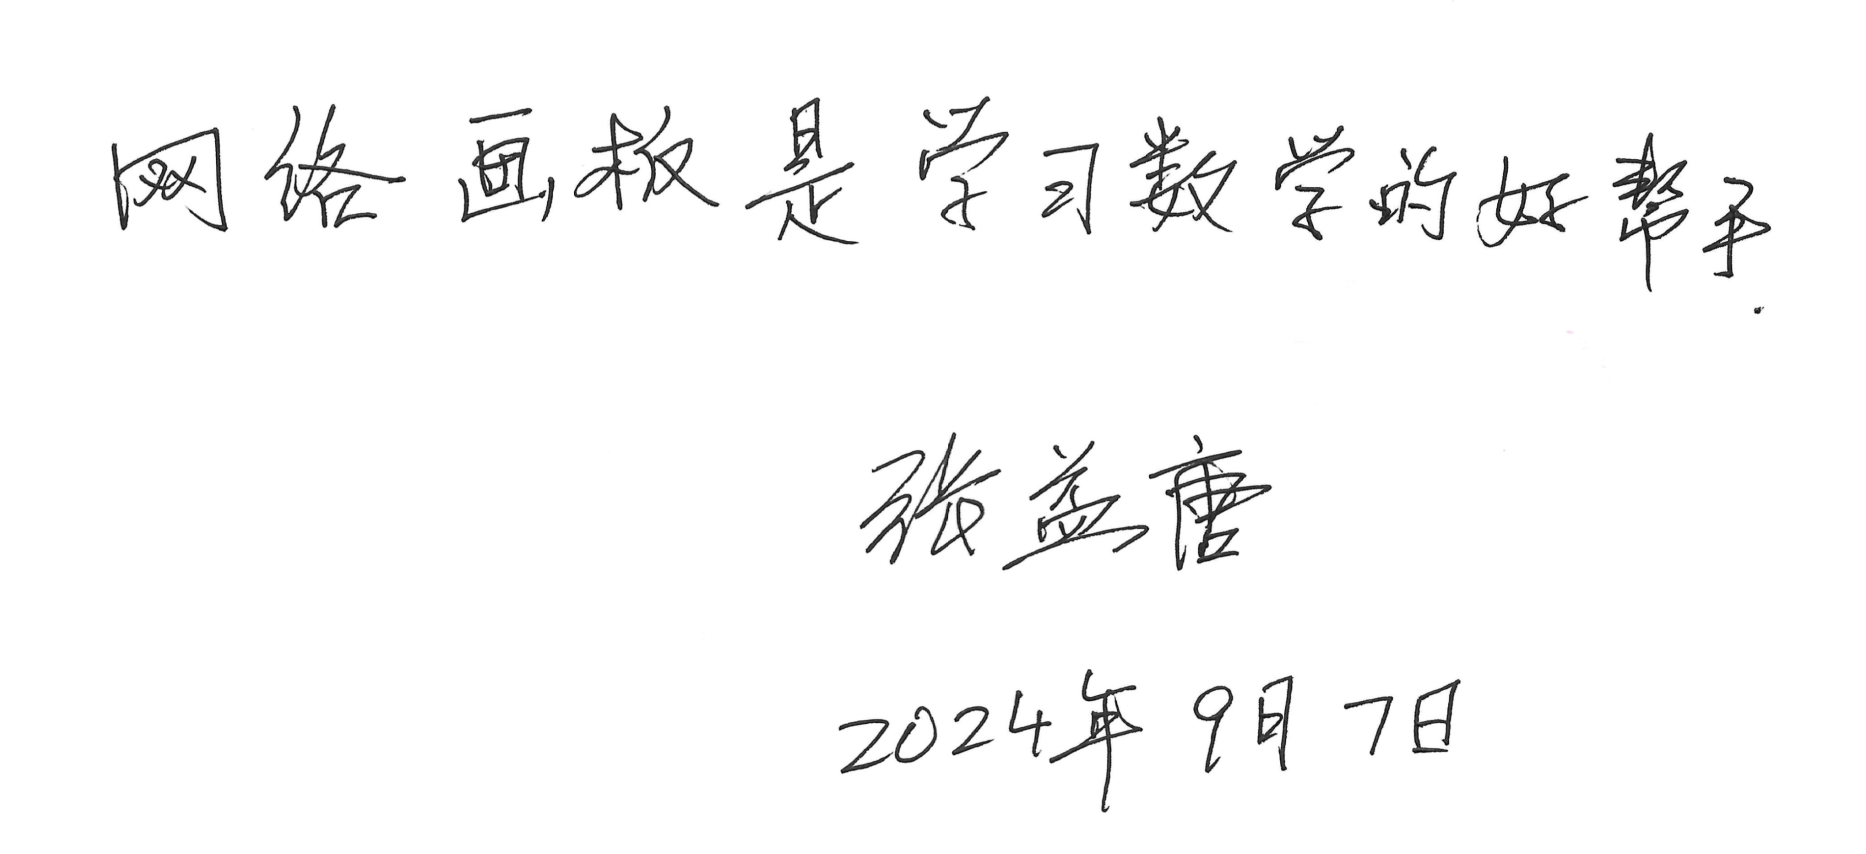 网络画板是学习数学的好帮手.
张益唐
2024年9月7日